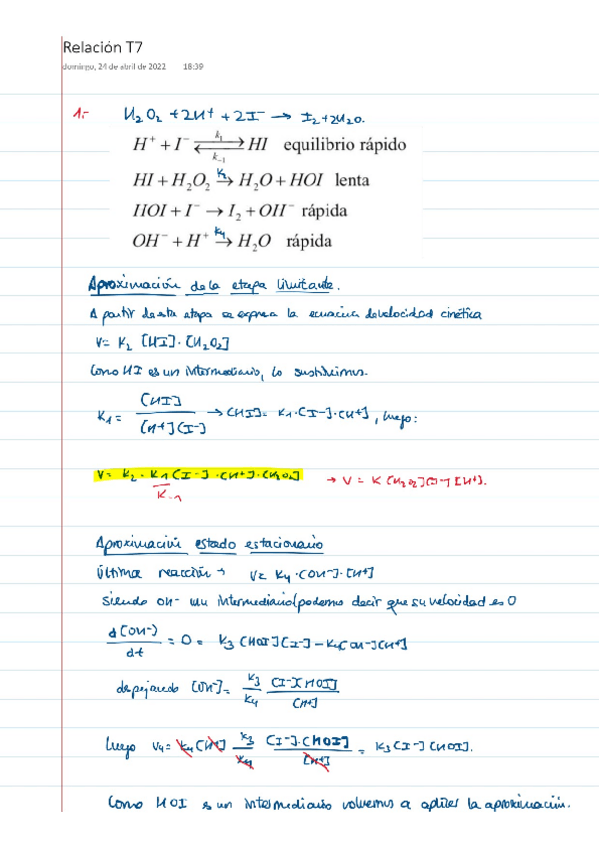 Relación T7
domingo, 24 de abril de 2022 18:39
1.- H₂O₂ + 2H⁺ + 2I⁻ → I₂ + 2H₂O.
H⁺ + I⁻ ⇌ HI equilibrio rápido
k₁
k₋₁
HI + H₂O₂ →(K₂) H₂O + HOI lenta
HOI + I⁻ → I₂ + OH⁻ rápida
OH⁻ + H⁺ →(K₄) H₂O rápida
Aproximación de la etapa limitante.
A partir de esta etapa se expresa la ecuación de velocidad cinética
V= K₂ [HI]·[H₂O₂]
Como HI es un intermediario, lo sustituimos.
K₁ = [HI] / [H⁺][I⁻] → [HI]= K₁·[I⁻]·[H⁺], luego:
V= K₂·K₁/K₋₁ [I⁻]·[H⁺]·[H₂O₂] → V = K [H₂O₂][I⁻][H⁺].
Aproximación estado estacionario
Última reacción → V= K₄·[OH⁻]·[H⁺]
Siendo OH⁻ un intermediario (podemos decir que su velocidad es 0
d[OH⁻]/dt = 0 = K₃ [HOI][I⁻] − K₄[OH⁻][H⁺]
despejando [OH⁻]= K₃/K₄ [I⁻][HOI]/[H⁺]
luego V₄= K₄[H⁺] K₃/K₄ [I⁻]·[HOI]/[H⁺] = K₃[I⁻][HOI].
Como HOI es un intermediario volvemos a aplicar la aproximación.